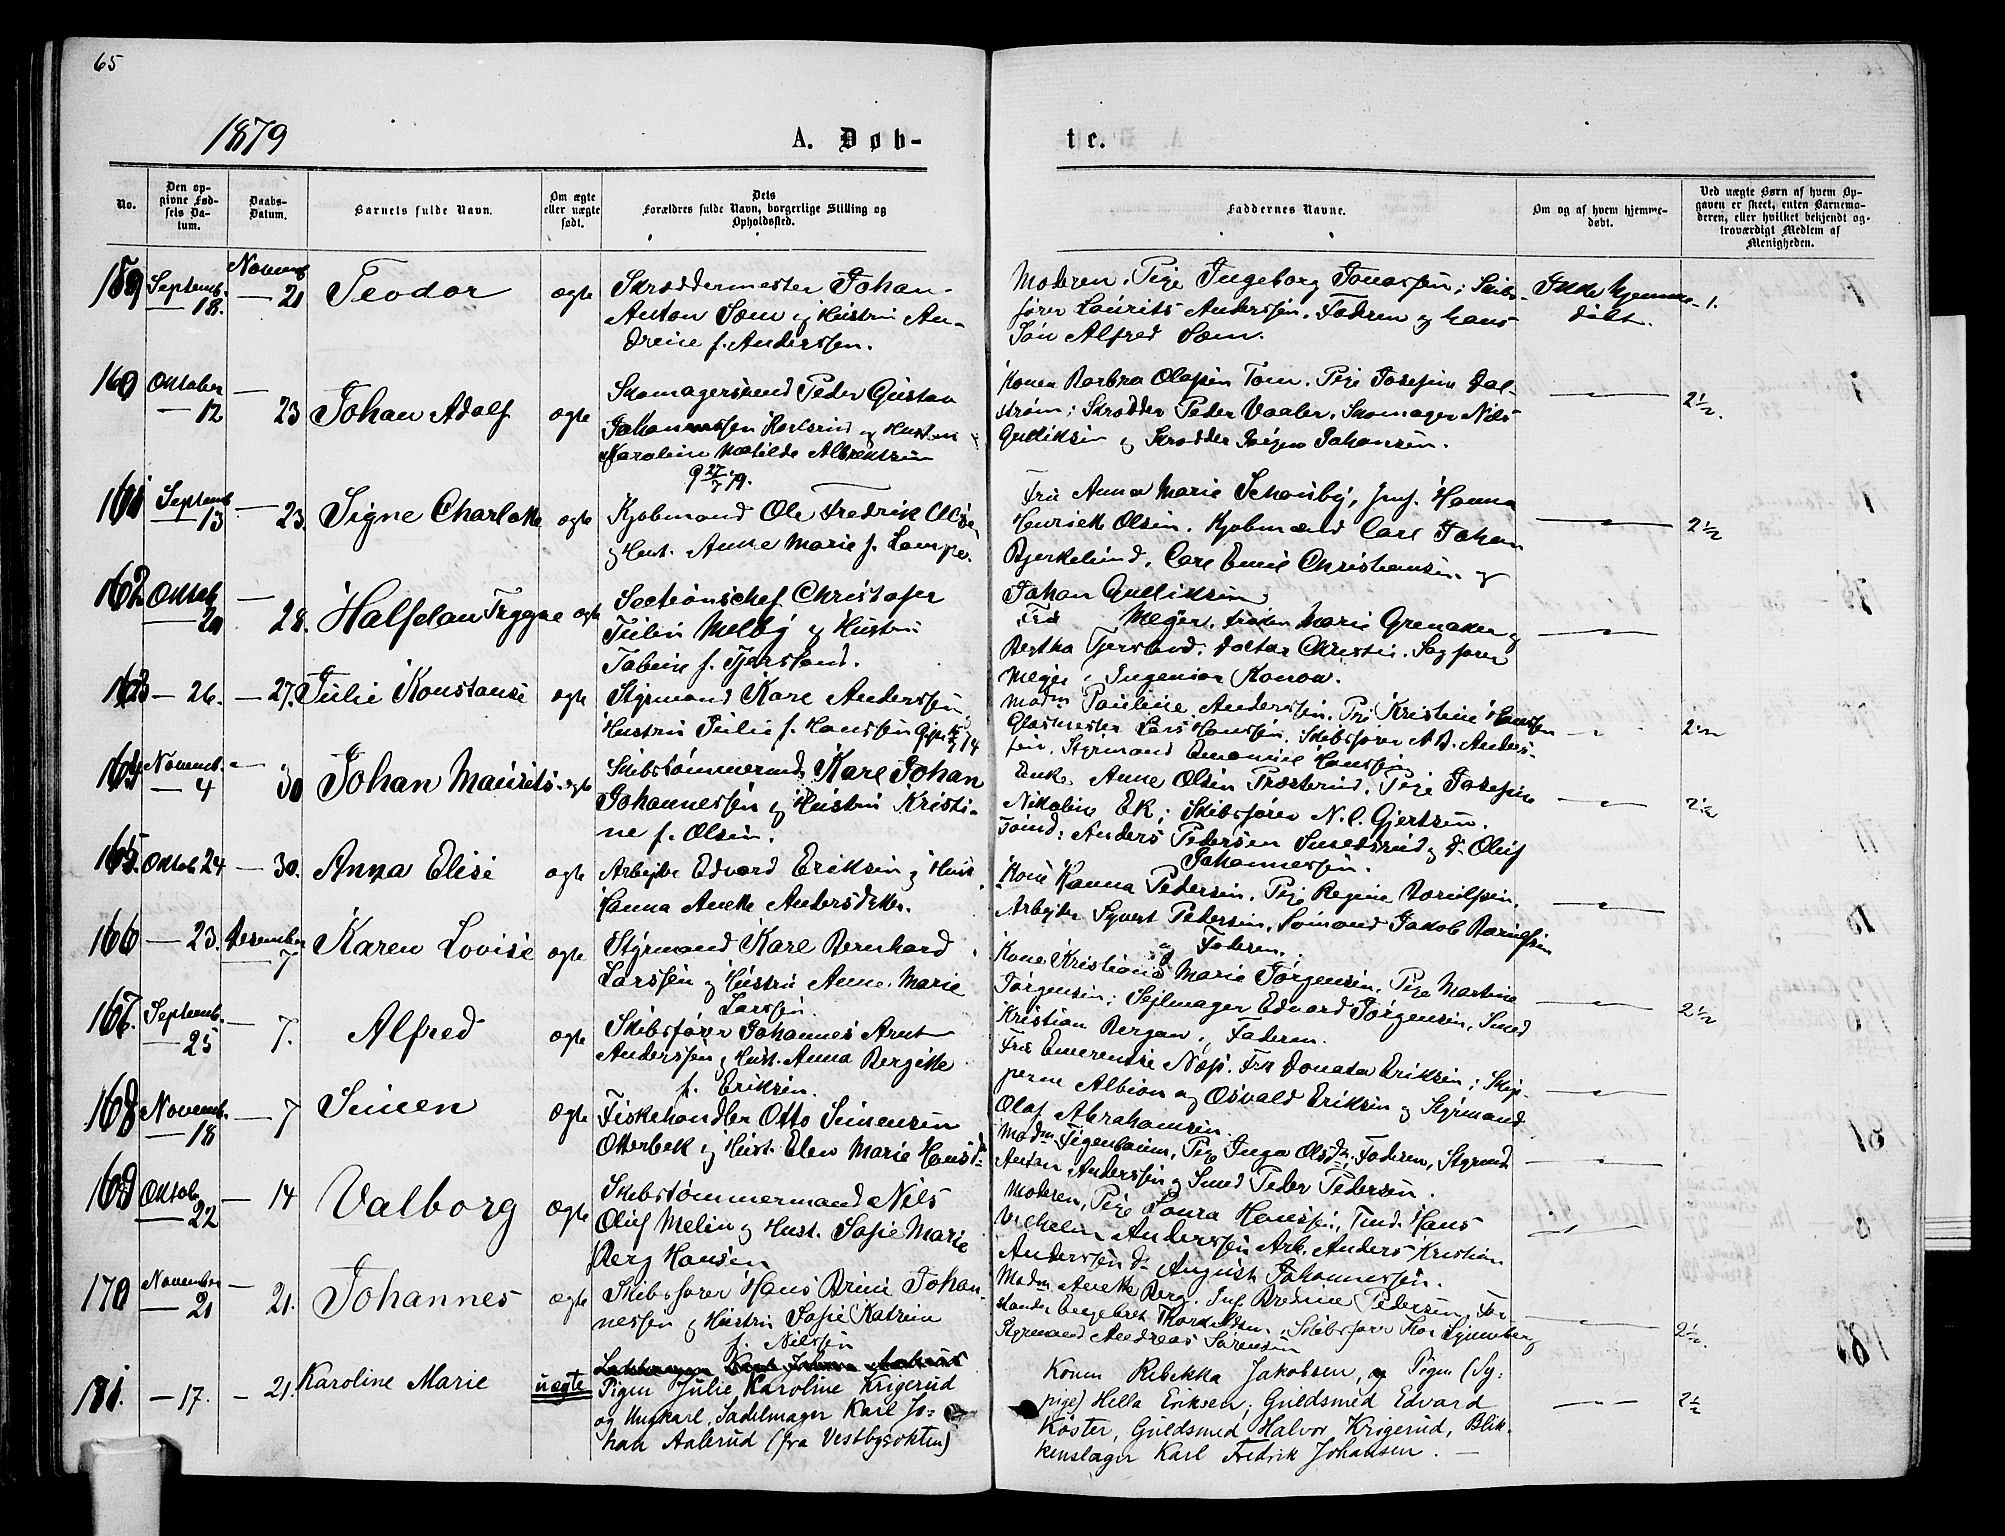 65
1879
A. Døb-
te.
No.
Den op-
givne Fød-
sels Da-
tum.
Daabs-
Datum.
Barnets fulde Navn.
Om ægte
eller uægte
født.
Dets
Forældres fulde Navn, borgerlige Stilling og
Opholdssted.
Faddernes Navne.
Om og af hvem hjemme-
døbt.
Ved uægte Børn af hvem Op-
gaven er skeet, enten Barnemo-
deren, eller hvilket bekjendt og-
troværdigt Medlem af
Menigheden.
159 Septemb. 18. Novemb 21 Teodor ægte
Skræddermester Johan
Anton Søm og Hustru An-
dreine f. Anderssen.
Moderen. Pige Ingeborg Jonassen; Skibs-
fører Laurits Anderssen. Faderen og hans
Søn Alfred Søm.
Ikke hjemme-
døbt. 1.
160 Oktober 12 — 23 Johan Adolf ægte
Skomagersvend Peder Gustav
Johannessen og Hustru
Karoline Matilde Albrektsen
g 27/7 79.
Konen Barbra Olassen Tom. Pige Josefine Dal-
strøm; Skrædder Peder Vaaler. Skomager Nils
Gulliksen og Skrædder Johansen.
— 2½.
161 Septemb 13 — 23. Signe Charlotte ægte
Kjøbmand Ole Fredrik
og Hust. Anne Marie f. Lampe.
Fru Anna Marie Schouby, Jmf. Hanna
Henriette Olsen. Kjøbmænd Carl Johan
Bjerkelund, Carl Emil Christiansen og
Johan Gulliksen
— 2½
162 Oktob 20 — 28. Halfdan Trygve ægte
Sectionschef Christofer
Melby og Hustru
f. Tjersland.
Fru Meyer. frøken Marie Grenaker og
Bertha Tjersland. Doktor Christin. Sagfører
Meyer, Ingeniør Konow.
—
163 — 26. — 27. Julie Konstanse ægte
Styrmand Karl Anderssen
Hustru Julie f. Hanssen
Madm Pauline Anderssen. Pige Kristine Hanssen
Glasmester Lars Hanssen. Skibsfører A. B. Anders-
sen. Styrmand Emanuel Hanssen
— 2½
164 Novemb. 4 — 30 Johan Maurits ægte
Skibstømmermd. Karl Johan
Johannessen og Hustru Kristi-
ne f. Olsen.
Enke Anne Olsen Præsterud. Pige Josefine
Nikoline Ek; Skibsfører N. C. Gjertsen.
Tømd: Anders Pedersen og do Oluf
Johannessen.
— 2½
165. Oktob 24 — 30. Anna Elise ægte
Arbejder Edvard Eriksen og Hust
Hanna Anette Andersdatter.
Kone Hanna Pedersen. Pige Regine
Arbejder Syvert Pedersen. Sømand Jakob
og Faderen.
—
166 — 23. Desember 7 Karen Lovise ægte
Styrmand Karl Bernhard
Larssen og Hustru Anne Marie
Larssen.
Kone Kristiane Marie Jørgensen, Pige Martine
Jørgensen; Sejlmager Edvard Jørgensen. Smed
Kristian Bergan, Faderen.
— 2½
167. Septemb. 25 — 7. Alfred ægte
Skibsfører Johannes Arnt
Anderssen og Hust. Anna Bergitte
f. Eriksen.
Fru Emerentse Næss. Fru Donata Eriksen; Skip-
perne Albion og Osvald Eriksen og Styrmand
Olaf Abrahamsen.
—
168 Novemb. 18 — 7 Simen ægte
Fiskehandler Otto Simensen
Otterbek og Hust. Elen Marie Hansd.
Madm Figenbaum, Pige Inga Olsdtr, Faderen, Styrmd.
Anton Anderssen og Smed Peder Pedersen.
—
169 Oktob. 22 — 14 Valborg ægte
Skibstømmermand Nils
Oluf Melin og Hust. Sofie Marie
Berg Hansen
Moderen, Pige Laura Hanssen, Tmd. Hans
Vilhelm Anderssen Arb. Anders Kristian
Anderssen do August Johannessen.
—
170 November 21 — 21. Johannes ægte
Skibsfører Hans Johan-
nessen og Hustru Sofie Katrine
f. Nilssen
Madm Anette Berg. Jmf. Bredine Pedersen, For-
stander Engebret Thorvaldsen, Skibsfører
Styrmand Andreas Sørensen
— 2½.
181. — 17. — 21. Karoline Marie uægte
Pigen Julie Karoline Krigerud
og Ungkarl, Sadelmager Karl Jo-
han Aalerud (fra Vestbysokten)
Konen Rebekka Jakobsen, og Pigen (Sy-
pige) Hella Eriksen; Guldsmed Edvard
Köster, Guldsmed Halvor Krigerud, Blik-
kenslager Karl Fredrik Johansen. —
— 2½